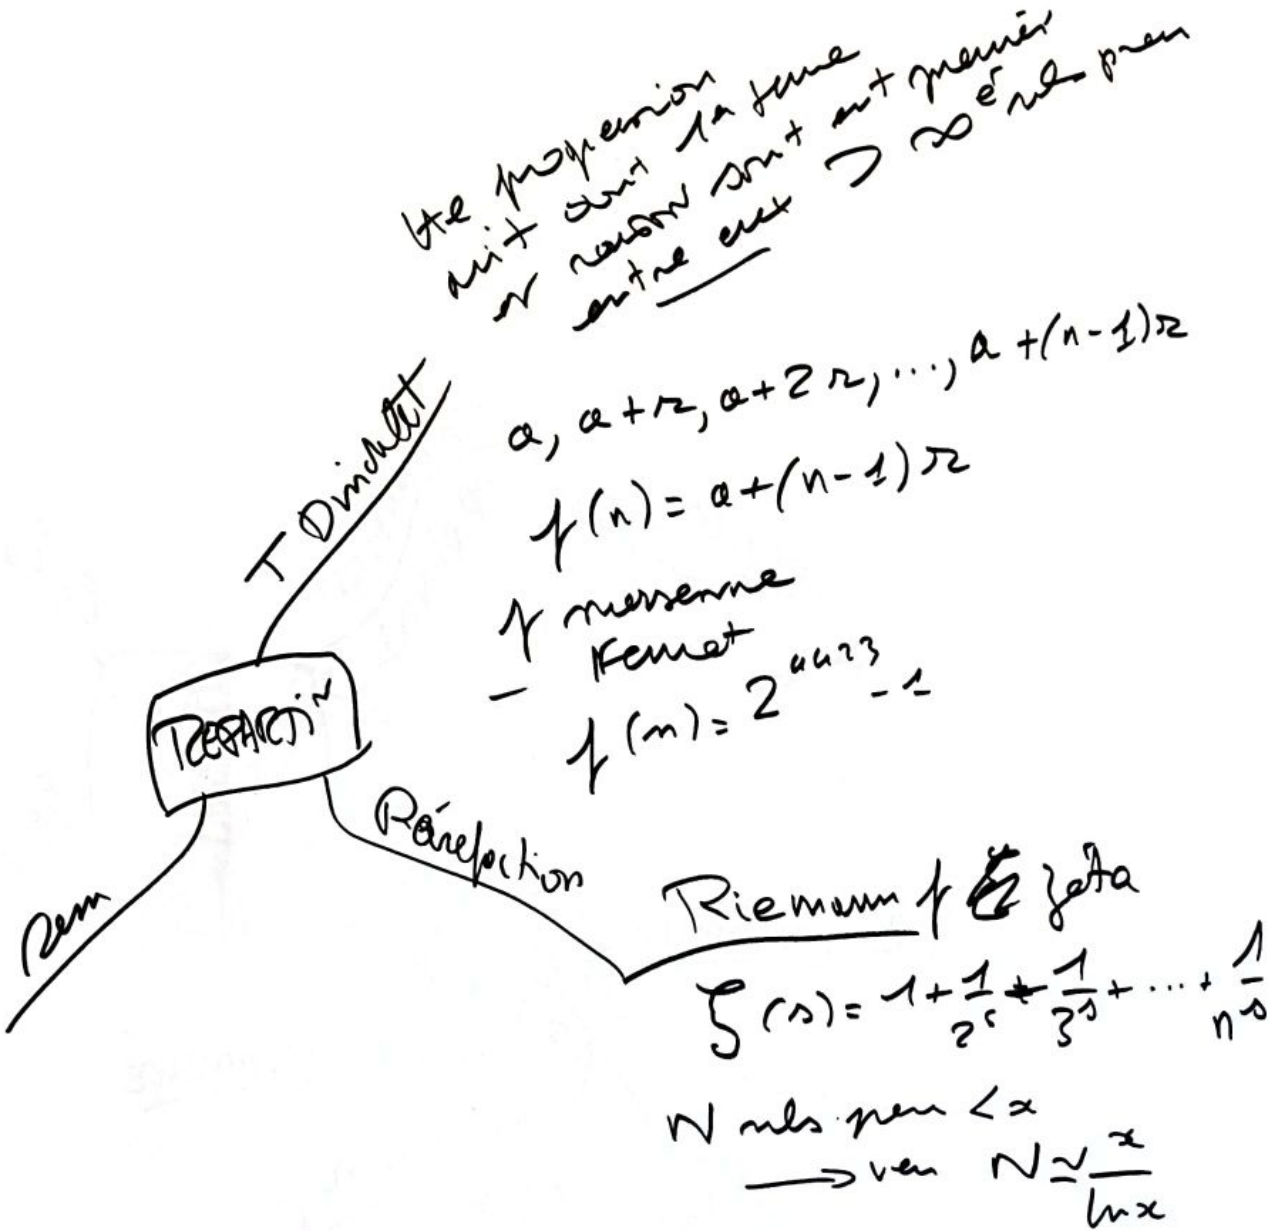 tte progression
arit dont 1er terme
et raison sont ent premier
entre eux ⊃ ∞ é nb prem
T Dirichlet
a, a+r, a+2r, ..., a+(n-1)r
f(n) = a+(n-1)r
f mersenne
- Fermat
f(n) = 2^4423 - 1
REPARTI~
Raréfaction
Dem
Riemann f zéta
ζ(s) = 1 + 1/2^s + 1/3^s + ... + 1/n^s
N nbs prem < x
→ vers N ≃ x/ln x